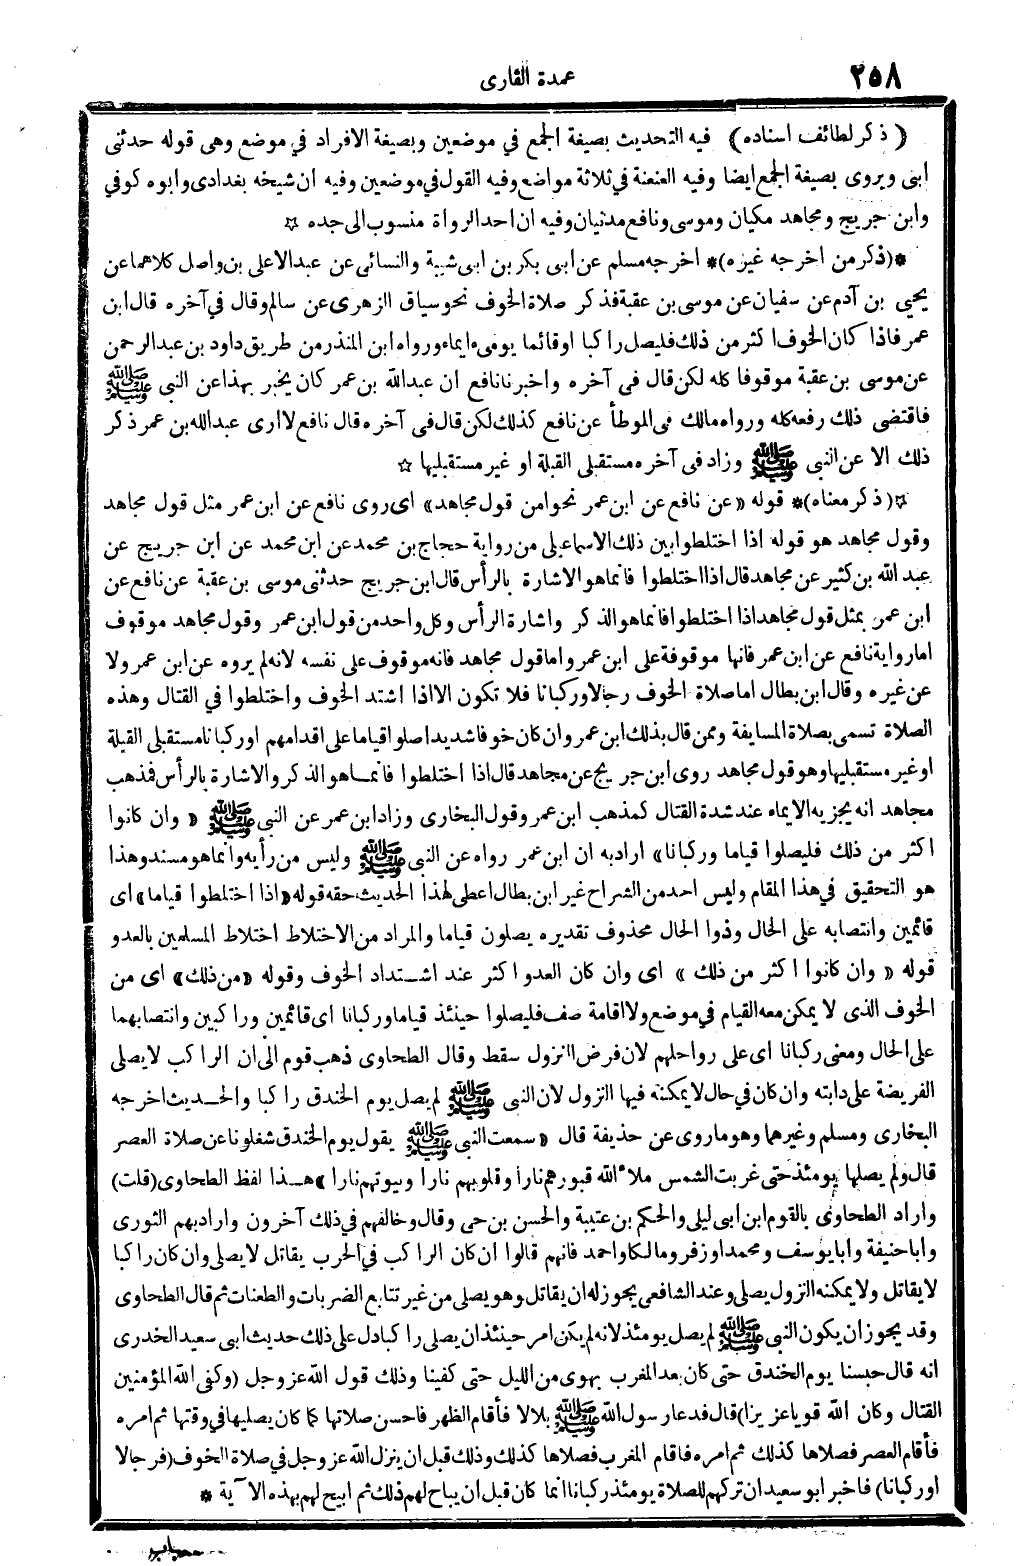 ٢٥٨
عمدة القارى
﴿ ذكر لطائف اسناده﴾ فيه التحديث بصيغة الجمع في موضعين وبصيغة الافراد في موضع وهى قوله حدثنى
ابى ويروى بصيغة الجمع ايضا وفيه العنعنة في ثلاثة مواضع وفيه القول في موضعين وفيه ان شيخه بغدادى وابوه كوفي
وابن جريج ومجاهد مكيان وموسى ونافع مدنيان وفيه ان احد الرواة منسوب الى جده ☆
*(ذكر من اخرجه غيره)* اخرجه مسلم عن ابى بكر بن ابى شيبة والنسائى عن عبد الاعلى بن واصل كلاهما عن
يحيى بن آدم عن سفيان عن موسى بن عقبة فذكر صلاة الخوف نحو سياق الزهرى عن سالم وقال في آخره قال ابن
عمر فاذا كان الخوف اكثر من ذلك فليصل راكبا او قائما يومىء ايماء ورواه ابن المنذر من طريق داود بن عبد الرحمن
عن موسى بن عقبة موقوفا كله لكن قال فى آخره واخبرنا نافع ان عبد الله بن عمر كان يخبر بهذا عن النبى ﷺ
فاقتضى ذلك رفعه كله ورواه مالك فى الموطأ عن نافع كذلك لكن قال فى آخره قال نافع لا ارى عبد الله بن عمر ذكر
ذلك الا عن النبى ﷺ وزاد فى آخره مستقبلى القبلة او غير مستقبليها ☆
☆(ذكر معناه)* قوله «عن نافع عن ابن عمر نحوا من قول مجاهد» اى روى نافع عن ابن عمر مثل قول مجاهد
وقول مجاهد هو قوله اذا اختلطوا بين ذلك الاسماعيلى من رواية حجاج بن محمد عن ابن محمد عن ابن جريج عن
عبد الله بن كثير عن مجاهد قال اذا اختلطوا فانما هو الاشارة بالرأس قال ابن جريج حدثنى موسى بن عقبة عن نافع عن
ابن عمر بمثل قول مجاهد اذا اختلطوا فانما هو الذكر واشارة الرأس وكل واحد من قول ابن عمر وقول مجاهد موقوف
اما رواية نافع عن ابن عمر فانها موقوفة على ابن عمر واما قول مجاهد فانه موقوف على نفسه لانه لم يروه عن ابن عمر ولا
عن غيره وقال ابن بطال اما صلاة الخوف رجالا وركبانا فلا تكون الا اذا اشتد الخوف واختلطوا في القتال وهذه
الصلاة تسمى بصلاة المسايفة وممن قال بذلك ابن عمر وان كان خوفا شديدا صلوا قياما على اقدامهم او ركبانا مستقبلى القبلة
او غير مستقبليها وهو قول مجاهد روى ابن جريج عن مجاهد قال اذا اختلطوا فانما هو الذكر والاشارة بالرأس فمذهب
مجاهد انه يجزيه الايماء عند شدة القتال كمذهب ابن عمر وقول البخارى وزاد ابن عمر عن النبى ﷺ « وان كانوا
اكثر من ذلك فليصلوا قياما وركبانا» اراد به ان ابن عمر رواه عن النبى ﷺ وليس من رأيه وانما هو مسند وهذا
هو التحقيق في هذا المقام وليس احد من الشراح غير ابن بطال اعطى لهذا الحديث حقه قوله «اذا اختلطوا قياما» اى
قائمين وانتصابه على الحال وذوا الحال محذوف تقديره يصلون قياما والمراد من الاختلاط اختلاط المسلمين بالعدو
قوله « وان كانوا اكثر من ذلك » اى وان كان العدو اكثر عند اشتداد الخوف وقوله «من ذلك» اى من
الخوف الذى لا يمكن معه القيام في موضع ولا اقامة صف فليصلوا حينئذ قياما وركبانا اى قائمين وراكبين وانتصابهما
على الحال ومعنى ركبانا اى على رواحلهم لان فرض النزول سقط وقال الطحاوى ذهب قوم الى ان الراكب لا يصلى
الفريضة على دابته وان كان في حال لا يمكنه فيها النزول لان النبى ﷺ لم يصل يوم الخندق راكبا والحديث اخرجه
البخارى ومسلم وغيرهما وهو ما روى عن حذيفة قال « سمعت النبى ﷺ يقول يوم الخندق شغلونا عن صلاة العصر
قال ولم يصلها يومئذ حتى غربت الشمس ملأ الله قبورهم نارا وقلوبهم نارا وبيوتهم نارا » هذا لفظ الطحاوى (قلت)
واراد الطحاوى بالقوم ابن ابى ليلى والحكم بن عتيبة والحسن بن حى وقال وخالفهم في ذلك آخرون واراد بهم الثورى
وابا حنيفة وابا يوسف ومحمدا وزفر ومالكا واحمد فانهم قالوا ان كان الراكب في الحرب يقاتل لا يصلى وان كان راكبا
لا يقاتل ولا يمكنه النزول يصلى وعند الشافعى يجوز له ان يقاتل وهو يصلى من غير تتابع الضربات والطعنات ثم قال الطحاوى
وقد يجوز ان يكون النبى ﷺ لم يصل يومئذ لانه لم يكن امر حينئذ ان يصلى راكبا دل على ذلك حديث ابى سعيد الخدرى
انه قال حبسنا يوم الخندق حتى كان بعد المغرب بهوى من الليل حتى كفينا وذلك قول الله عز وجل (وكفى الله المؤمنين
القتال وكان الله قويا عزيزا) قال فدعا رسول الله ﷺ بلالا فأقام الظهر فاحسن صلاتها كما كان يصليها في وقتها ثم امره
فأقام العصر فصلاها كذلك ثم امره فاقام المغرب فصلاها كذلك وذلك قبل ان ينزل الله عز وجل في صلاة الخوف (فرجالا
او ركبانا) فاخبر ابو سعيد ان تركهم للصلاة يومئذ ركبانا انما كان قبل ان يباح لهم ذلك ثم ابيح لهم بهذه الآية *